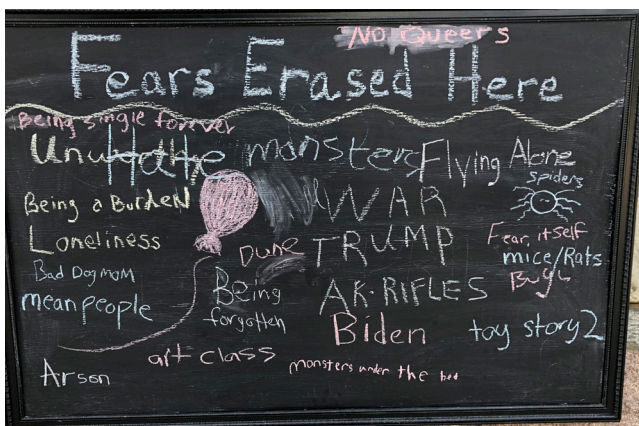 No Queers
Fears Erased Here
Being single forever
monsters
Flying Alone
spiders
Being a Burden
WAR
Loneliness
Dune
TRUMP
Fear, itself
mice/Rats
Bad Dog mom
Bugs
mean people
Being
forgotten
AK-RIFLES
Biden
toy story 2
art class
monsters under the bed
Arson